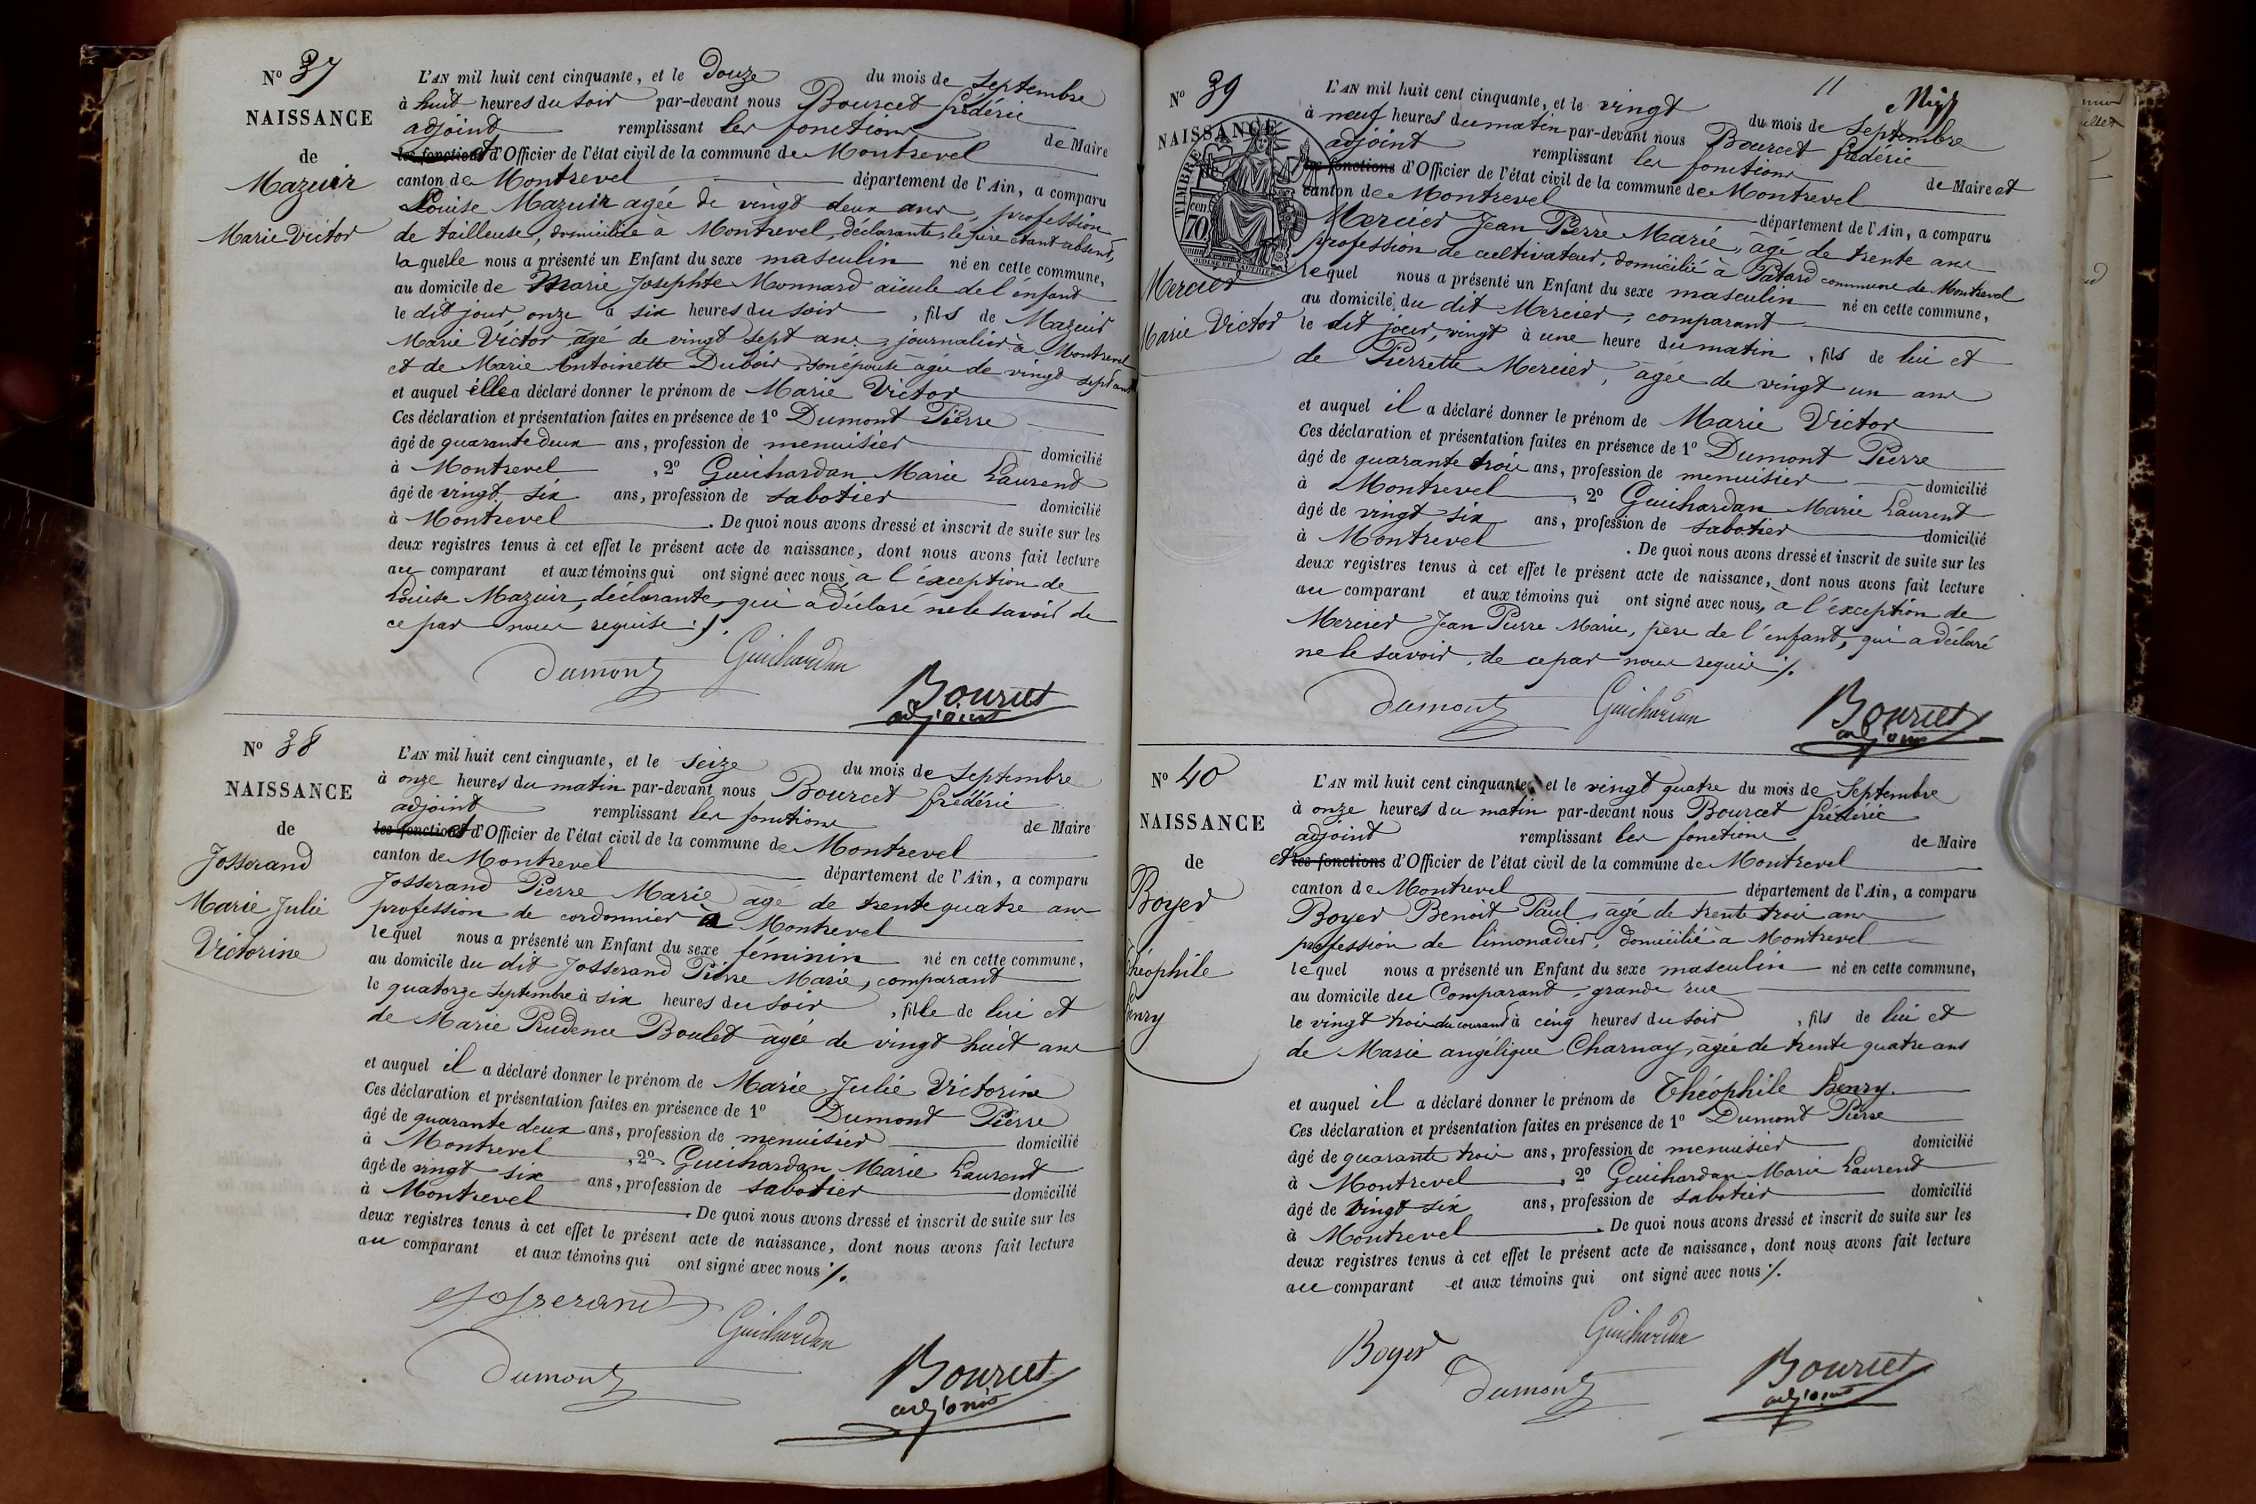 N° 37
NAISSANCE
de
Mazuir
Marie Victor
L'AN mil huit cent cinquante, et le Douze du mois de Septembre
à huit heures du soir par-devant nous Bourcet frédéric
adjoint remplissant les fonctions de Maire
les fonctions et d'Officier de l'état civil de la commune de Montrevel
canton de Montrevel département de l'Ain, a comparu
Louise Mazuir agée de vingt deux ans, profession
de tailleuse, domiciliée à Montrevel, déclarante, le père étant absent,
laquelle nous a présenté un Enfant du sexe masculin né en cette commune,
au domicile de Marie Josephte Monnard aïeule de l'enfant
le dit jour, onze à six heures du soir, fils de Mazuir
Marie Victor, âgé de vingt sept ans, journalier à Montrevel
et de Marie Antoinette Dubois, son épouse âgée de vingt sept ans
et auquel elle a déclaré donner le prénom de Marie Victor
Ces déclaration et présentation faites en présence de 1° Dumont Pierre
âgé de quarante deux ans, profession de menuisier domicilié
à Montrevel, 2° Guichardan Marie Laurent
âgé de vingt six ans, profession de sabotier domicilié
à Montrevel. De quoi nous avons dressé et inscrit de suite sur les
deux registres tenus à cet effet le présent acte de naissance, dont nous avons fait lecture
au comparant et aux témoins qui ont signé avec nous, à l'exception de
Louise Mazuir, déclarante, qui a déclaré ne le savoir de
ce par nous requise ./.
Dumont Guichardan
Bourcet
adjoint
N° 38
NAISSANCE
de
Josserand
Marie Julie
Victorine
L'AN mil huit cent cinquante, et le seize du mois de Septembre
à onze heures du matin par-devant nous Bourcet frédéric
adjoint remplissant les fonctions de Maire
les fonctions et d'Officier de l'état civil de la commune de Montrevel
canton de Montrevel département de l'Ain, a comparu
Josserand Pierre Marie âgé de trente quatre ans
profession de cordonnier à Montrevel
lequel nous a présenté un Enfant du sexe féminin né en cette commune,
au domicile du dit Josserand Pierre Marie, comparant
le quatorze septembre à six heures du soir, fille de lui et
de Marie Prudence Boulet âgée de vingt huit ans
et auquel il a déclaré donner le prénom de Marie Julie Victorine
Ces déclaration et présentation faites en présence de 1° Dumont Pierre
âgé de quarante deux ans, profession de menuisier domicilié
à Montrevel, 2° Guichardan Marie Laurent
âgé de vingt six ans, profession de sabotier domicilié
à Montrevel. De quoi nous avons dressé et inscrit de suite sur les
deux registres tenus à cet effet le présent acte de naissance, dont nous avons fait lecture
au comparant et aux témoins qui ont signé avec nous ./.
Josserand Guichardan
Dumont
Bourcet
adjoint
11
N° 39
NAISSANCE
de
TIMBRE
cen
70
Mercier
Marie Victor
L'AN mil huit cent cinquante, et le vingt du mois de Septembre
à neuf heures du matin par-devant nous Bourcet frédéric
adjoint remplissant les fonctions de Maire et
les fonctions d'Officier de l'état civil de la commune de Montrevel
canton de Montrevel département de l'Ain, a comparu
Mercier Jean Pierre Marie, âgé de trente ans
profession de cultivateur, domicilié à Patard commune de Montrevel
lequel nous a présenté un Enfant du sexe masculin né en cette commune,
au domicile du dit Mercier, comparant
le dit jour, vingt à une heure du matin, fils de lui et
de Pierrette Mercier, agee de vingt un ans
et auquel il a déclaré donner le prénom de Marie Victor
Ces déclaration et présentation faites en présence de 1° Dumont Pierre
âgé de quarante trois ans, profession de menuisier domicilié
à Montrevel, 2° Guichardan Marie Laurent
âgé de vingt six ans, profession de sabotier domicilié
à Montrevel. De quoi nous avons dressé et inscrit de suite sur les
deux registres tenus à cet effet le présent acte de naissance, dont nous avons fait lecture
au comparant et aux témoins qui ont signé avec nous, à l'exception de
Mercier Jean Pierre Marie, père de l'enfant, qui a déclaré
ne le savoir, de ce par nous requis ./.
Dumont Guichardan
Bourcet
adjoint
N° 40
NAISSANCE
de
Boyer
Théophile
henry
L'AN mil huit cent cinquante, et le vingt quatre du mois de Septembre
à onze heures du matin par-devant nous Bourcet frédéric
adjoint remplissant les fonctions de Maire
et les fonctions d'Officier de l'état civil de la commune de Montrevel
canton de Montrevel département de l'Ain, a comparu
Boyer Benoit Paul, âgé de trente trois ans
profession de limonadier, domicilié à Montrevel
lequel nous a présenté un Enfant du sexe masculin né en cette commune,
au domicile du Comparant, grande rue
le vingt trois du courant à cinq heures du soir, fils de lui et
de Marie angélique Charnay, âgée de trente quatre ans
et auquel il a déclaré donner le prénom de Théophile henry.
Ces déclaration et présentation faites en présence de 1° Dumont Pierre
âgé de quarante trois ans, profession de menuisier domicilié
à Montrevel, 2° Guichardan Marie Laurent
âgé de vingt six ans, profession de sabotier domicilié
à Montrevel. De quoi nous avons dressé et inscrit de suite sur les
deux registres tenus à cet effet le présent acte de naissance, dont nous avons fait lecture
au comparant et aux témoins qui ont signé avec nous ./.
Boyer Guichardan
Dumont
Bourcet
adjoint